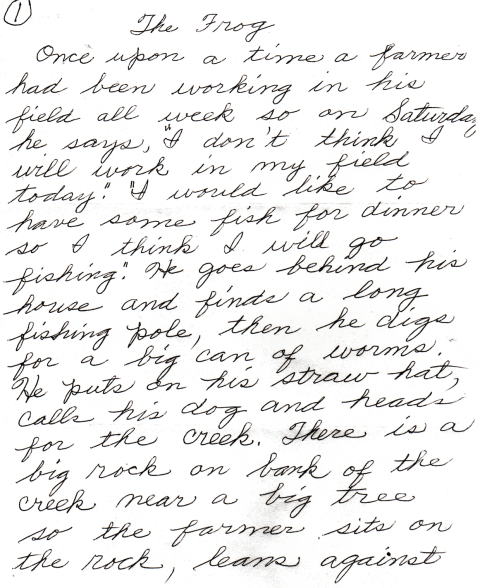 1
The Frog
Once upon a time a farmer
had been working in his
field all week so on Saturday
he says, "I don't think I
will work in my field
today." "I would like to
have some fish for dinner
so I think I will go
fishing." He goes behind his
house and finds a long
fishing pole, then he digs
for a big can of worms.
He puts on his straw hat,
calls his dog and heads
for the creek. There is a
big rock on bank of the
creek near a big tree
so the farmer sits on
the rock, leans against